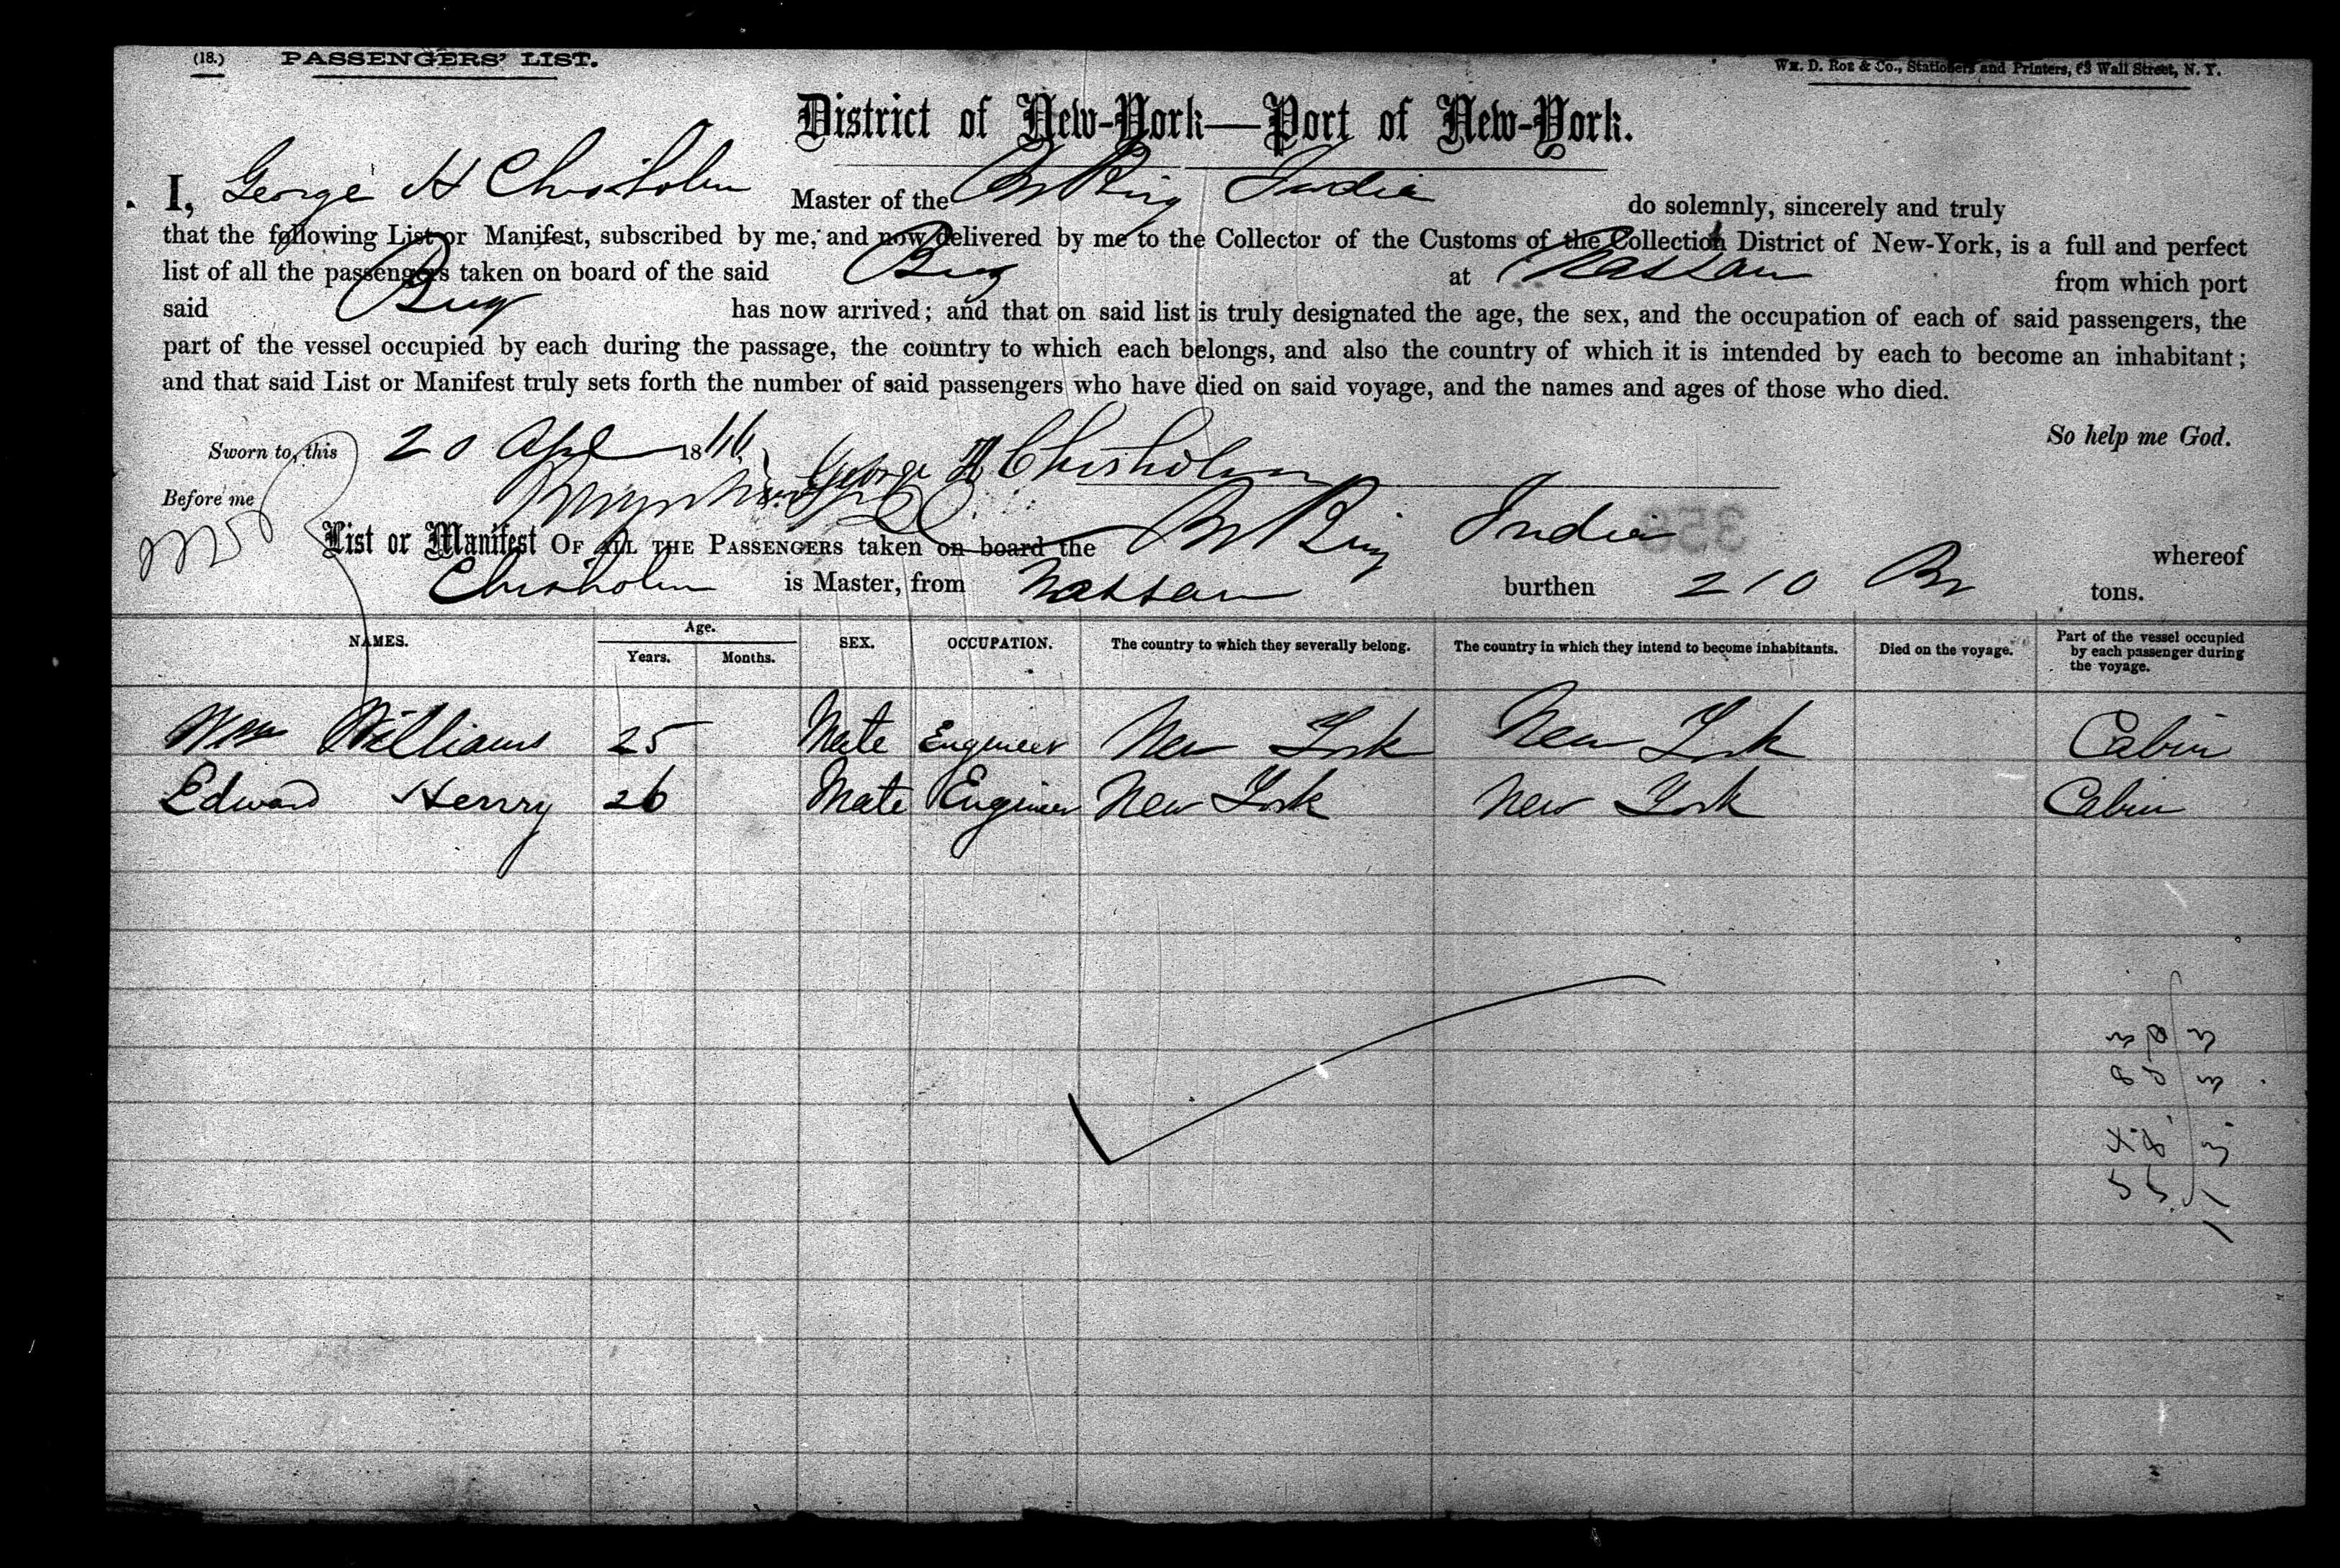 (18.) PASSENGERS' LIST. Wm. D. Roe & Co., Stationers and Printers, 63 Wall Street, N. Y.
District of New-York—Port of New-York.
I, George H Chisholm Master of the Br Brig India do solemnly, sincerely and truly
that the following List or Manifest, subscribed by me, and now delivered by me to the Collector of the Customs of the Collection District of New-York, is a full and perfect
list of all the passengers taken on board of the said Brig at Nassau from which port
said Brig has now arrived; and that on said list is truly designated the age, the sex, and the occupation of each of said passengers, the
part of the vessel occupied by each during the passage, the country to which each belongs, and also the country of which it is intended by each to become an inhabitant;
and that said List or Manifest truly sets forth the number of said passengers who have died on said voyage, and the names and ages of those who died.
Sworn to, this 20 Apl 1866 George H Chisholm So help me God.
Before me
List or Manifest OF ALL THE PASSENGERS taken on board the Br Brig India whereof
Chisholm is Master, from Nassau burthen 210 Br tons.
NAMES. Age. Years. Months. SEX. OCCUPATION. The country to which they severally belong. The country in which they intend to become inhabitants. Died on the voyage. Part of the vessel occupied by each passenger during the voyage.
Wm Williams 25 Male Engineer New York New York Cabin
Edward Henry 26 Male Engineer New York New York Cabin